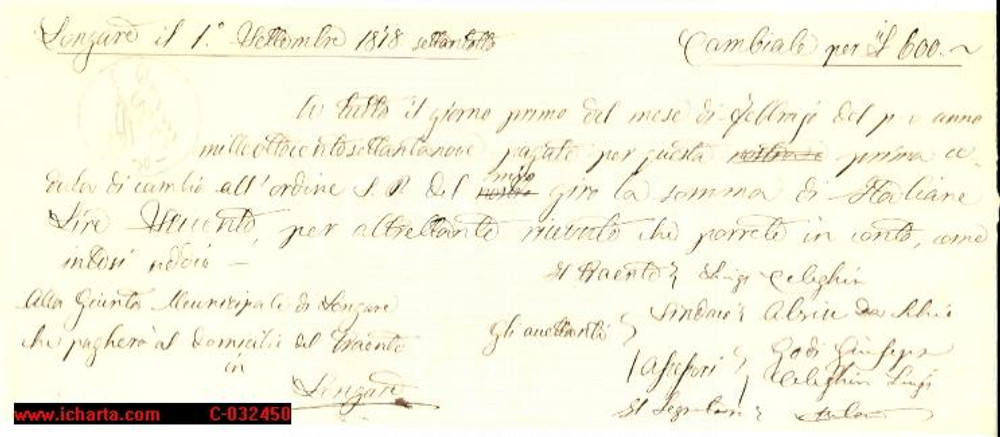 Longare il 1.° Settembre 1878 settantotto
Cambiale per £ 600.~
A tutto il giorno primo del mese di Febbrajo del p. v. anno
milleottocentosettantanove pagate per questa prima ce-
dola di cambio all'ordine S. P. del mio giro la somma di Italiane
Lire Seicento, per altrettante ricevute che porrete in conto, come
intesi addio —
Il Traente} Luigi Celeghin
Alla Giunta Municipale di Longare
che pagherà al domicilio del Traente
in
Longare
Gli accettanti }
Sindaco} Alvise Da Schio
Assessori } Godi Giuseppe
Celeghin Luigi
Il Segretario}
50
www.icharta.com C-032450